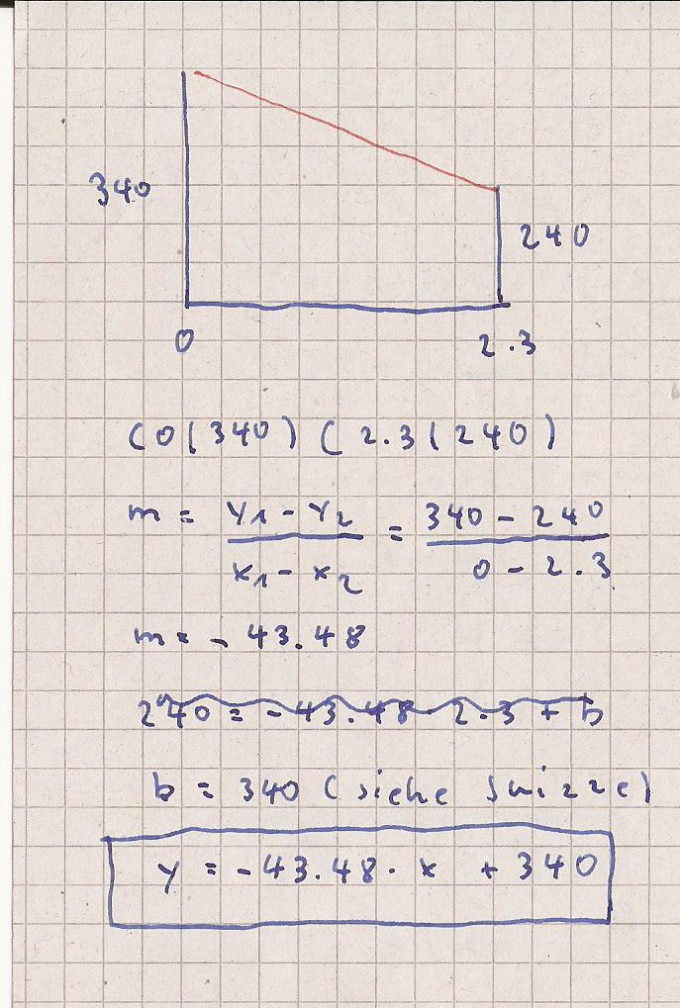 340
240
0 2.3
(0|340) (2.3|240)
m = y1 - y2 / x1 - x2 = 340 - 240 / 0 - 2.3
m = - 43.48
240 = - 43.48 · 2.3 + b
b = 340 (siehe Skizze)
y = -43.48 · x + 340